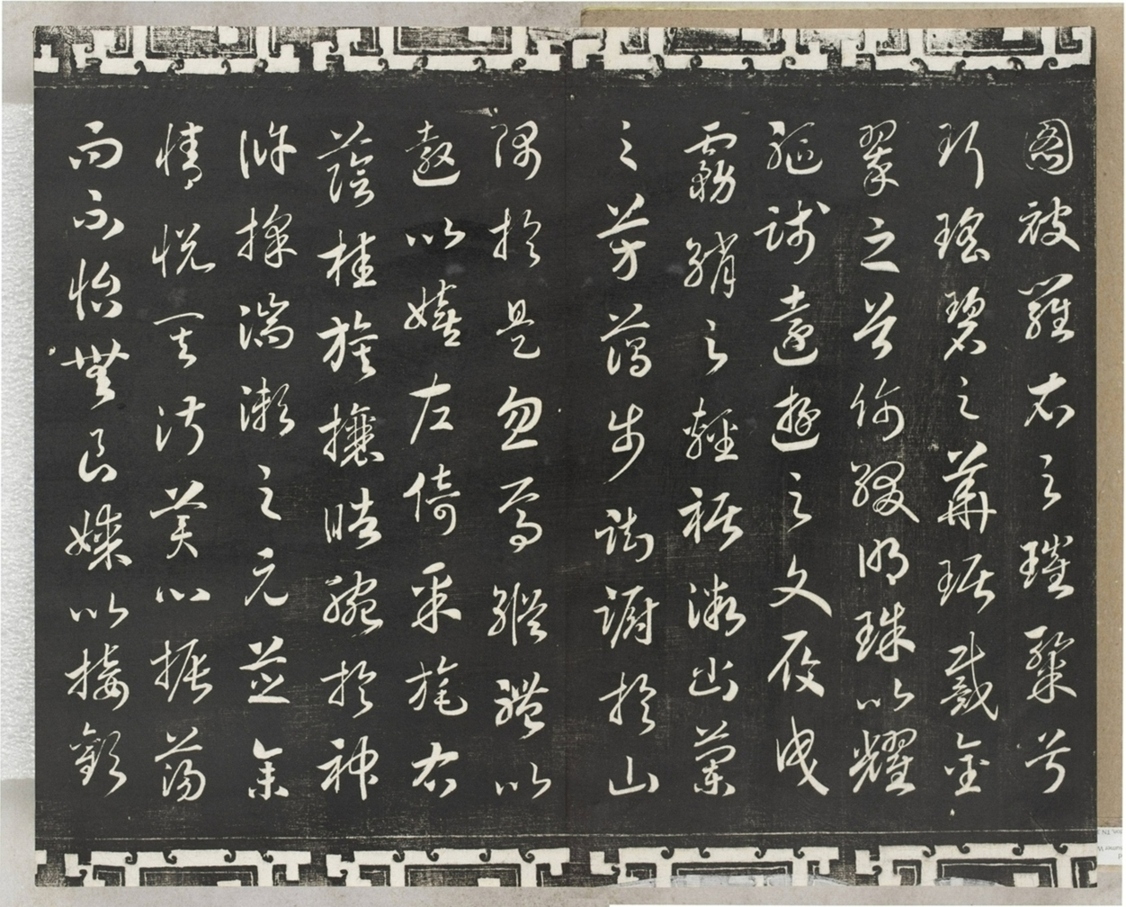 圖被羅衣之璀粲兮
珥瑤碧之華琚戴金
翠之首飾綴明珠以耀
軀踐遠遊之文履曳
霧綃之輕裾微幽蘭
之芳藹步踟躕於山
隅於是忽焉縱體以
遨以嬉左倚采旄右
蔭桂旗攘皓腕於神
滸採湍瀨之元芝余
情悅其淑美心振蕩
而不怡無良媒以接歡